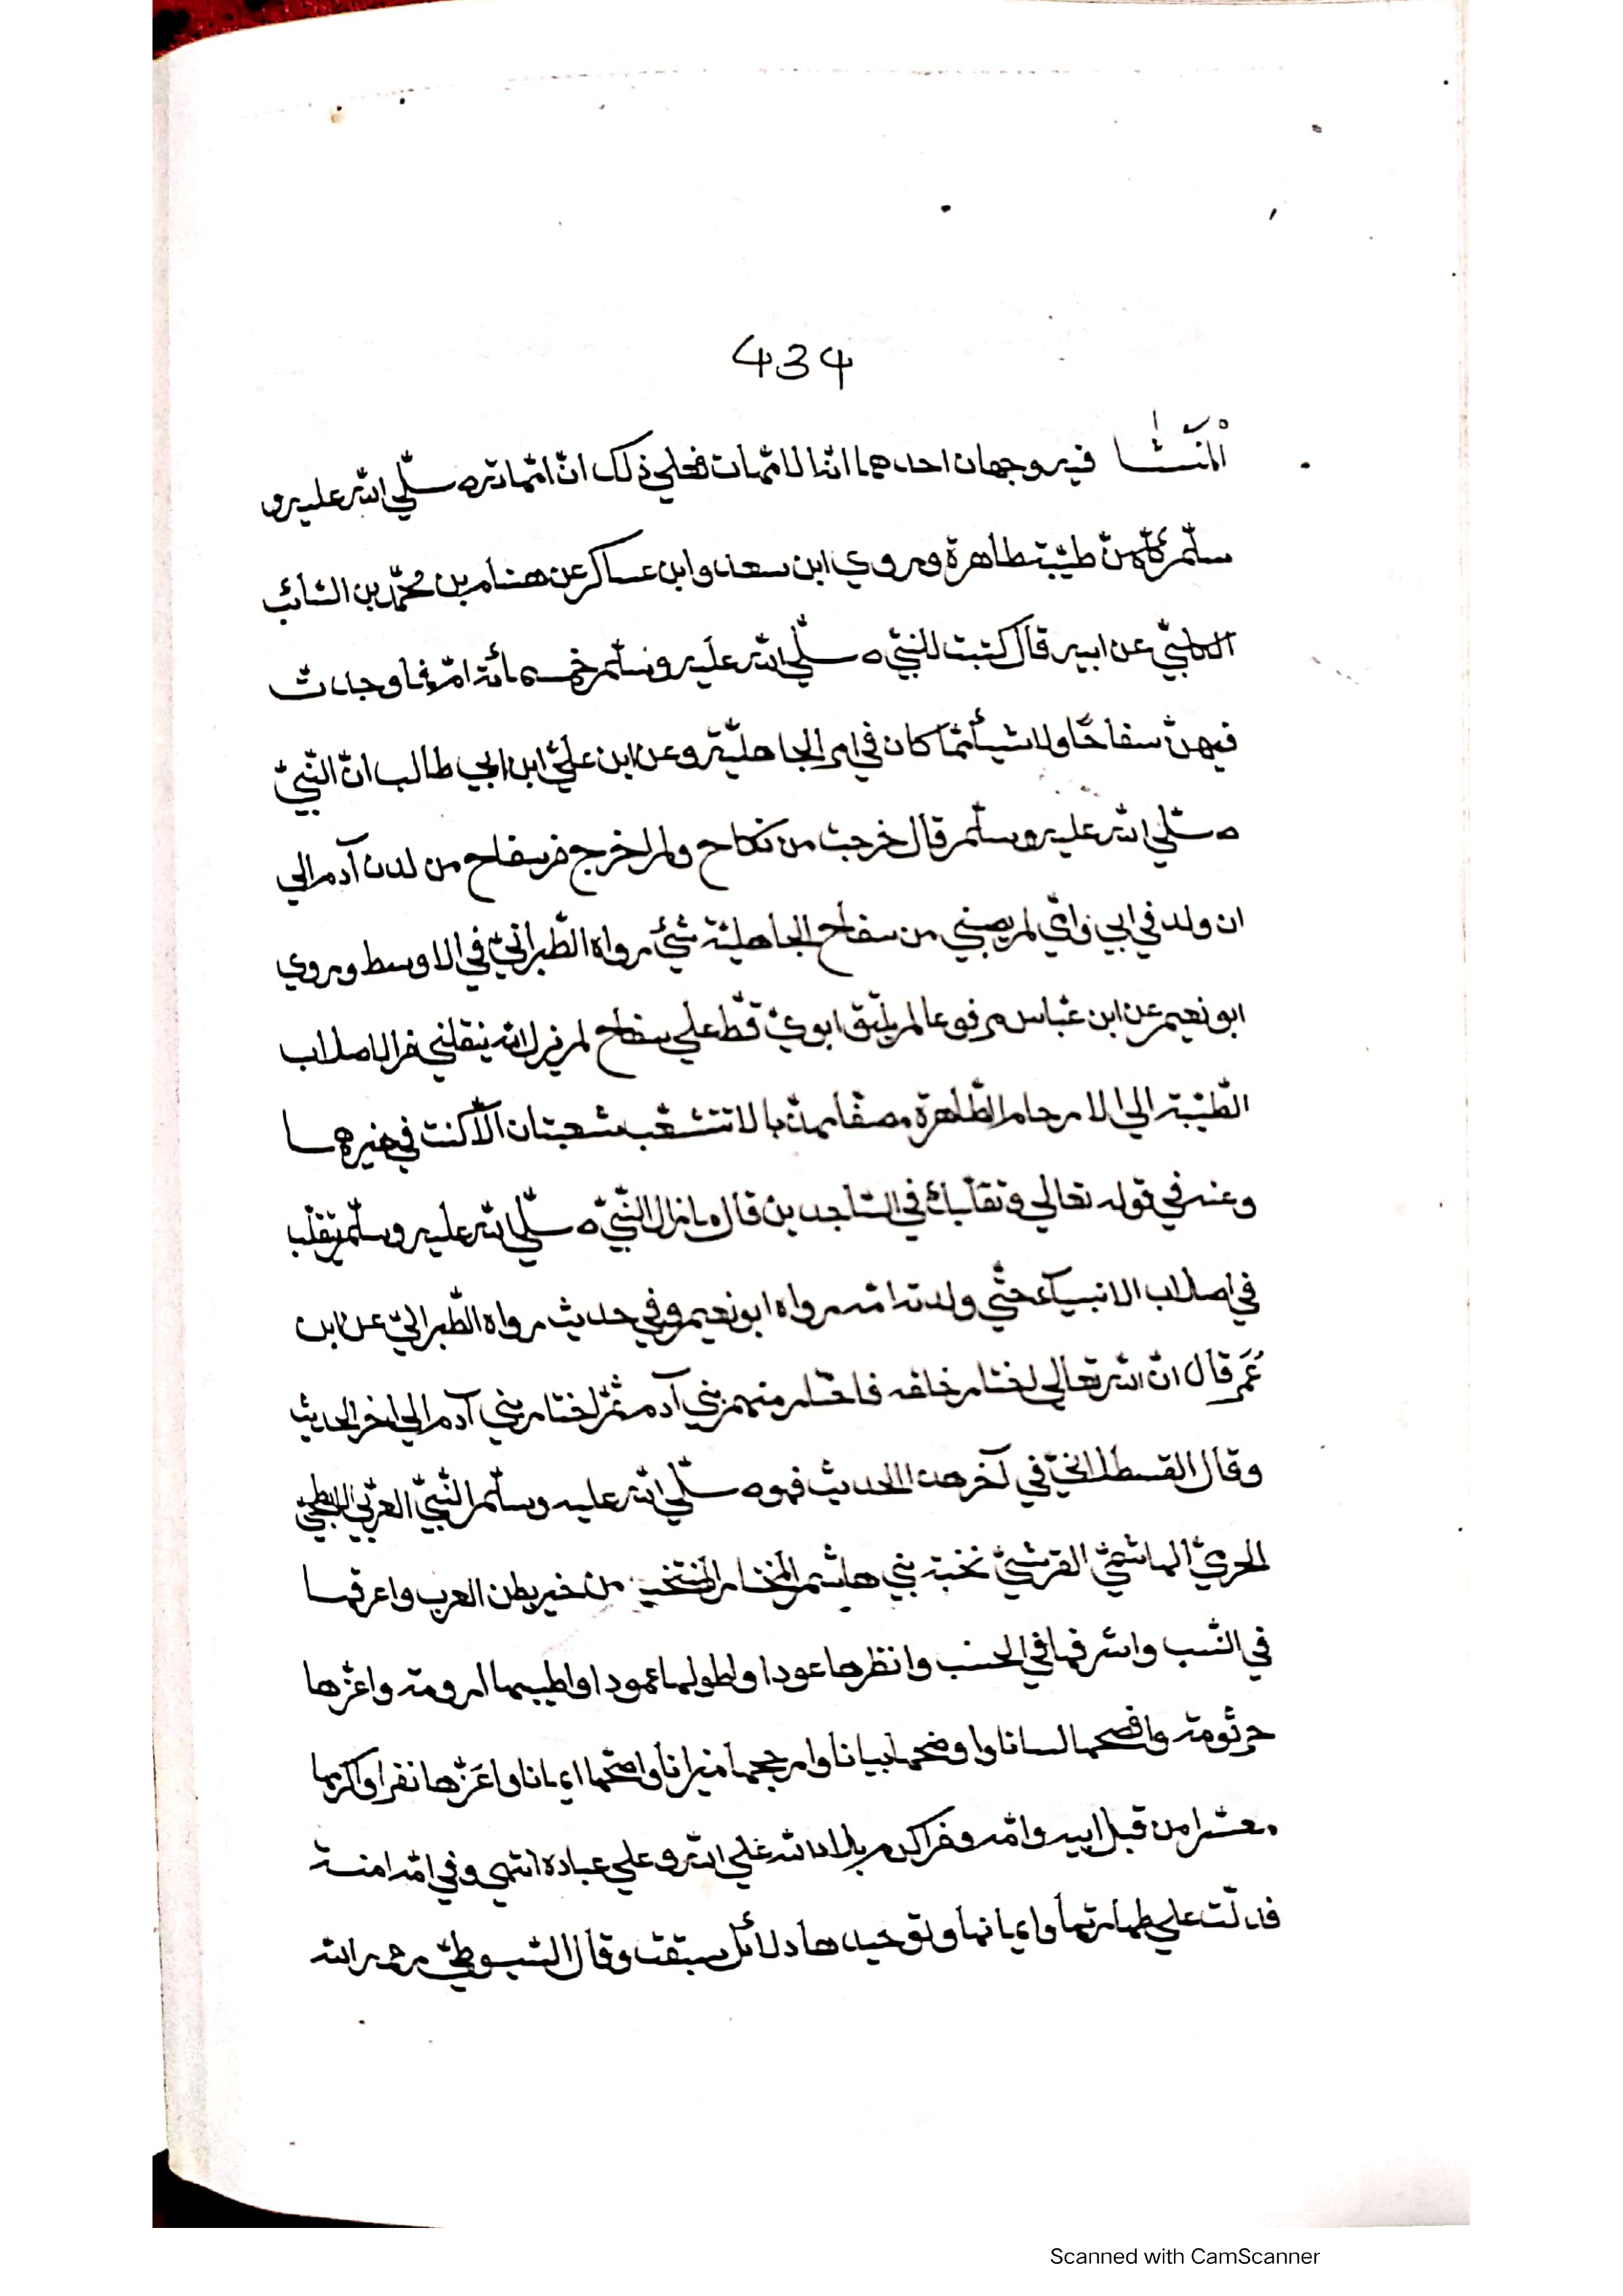 434
اْلمَنشَا فيه وجهان احدهما انّها لامّهات فعلي ذلك انّ امّهاته صلّي الله عليه و
سلّم كلّهنّ طيّبة طاهرة وروي ابن سعد وابن عساكر عن هشام بن محمّد بن السّائب
الكلبيّ عن ابيه قال كتبت للنبيّ صلّي الله عليه وسلّم خمسمائة امّ فما وجدت
فيهنّ سفاحًا ولا شيأ ممّا كان في امر الجاهليّة وعن ابن عليّ ابن ابي طالب انّ النّبيّ
صلّي الله عليه وسلّم قال خرجت من نكاح ولم اخرج من سفاح من لدن آدم الي
ان ولد في ابي وامّي لم يصبني من سفاح الجاهليّة شيّ رواه الطّبرانيّ في الاوسط وروي
ابو نعيم عن ابن عبّاس مرفوعا لم يلتق ابويّ قطّ علي سفاح لم يزل الله ينقلني من الاصلاب
الطّيّبة الي الارحام الطّاهرة مصفّا مهذّبا لا تتشعّب شعبتان الّا كنت في خيرهما
وعنه في قوله تعالي وتقلّبك في السّاجدين قال ما زال النّبيّ صلّي الله عليه وسلّم يتقلّب
في اصلاب الانبيآء حتّي ولدته امّه رواه ابو نعيم وفي حديث رواه الطّبرانيّ عن ابن
عُمَر قال انّ الله تعالي اختار خلقه فاختار منهم بني آدم ثمّ اختار بني آدم الي اخر الحديث
وقال القسطلانيّ في آخر هذا الحديث فهو صلّي الله عليه وسلّم النّبيّ العربيّ الابطحيّ
الحرميّ الهاشميّ القرشيّ نخبة بني هاشم المختار المنتخب من خير بطن العرب واعرقها
في النّسب واشرفها في الحسب وانظرها عودا واطولها عمودا واطيبها ارومة واعزّها
جرثومة وافصحها لسانا واوضحها بيانا وارجحها ميزانا واصحّها ايمانا واعَزّها نفرا واكرمها
معشرا من قبل ابيه وامّه ومن اكرم بلاد الله علي الله وعلي عباده انتهي وفي امّه امنة
فدلّت علي طهارتها وايمانها وتوحيدها دلائل سبقت وقال السّيوطيّ رحمه الله
Scanned with CamScanner